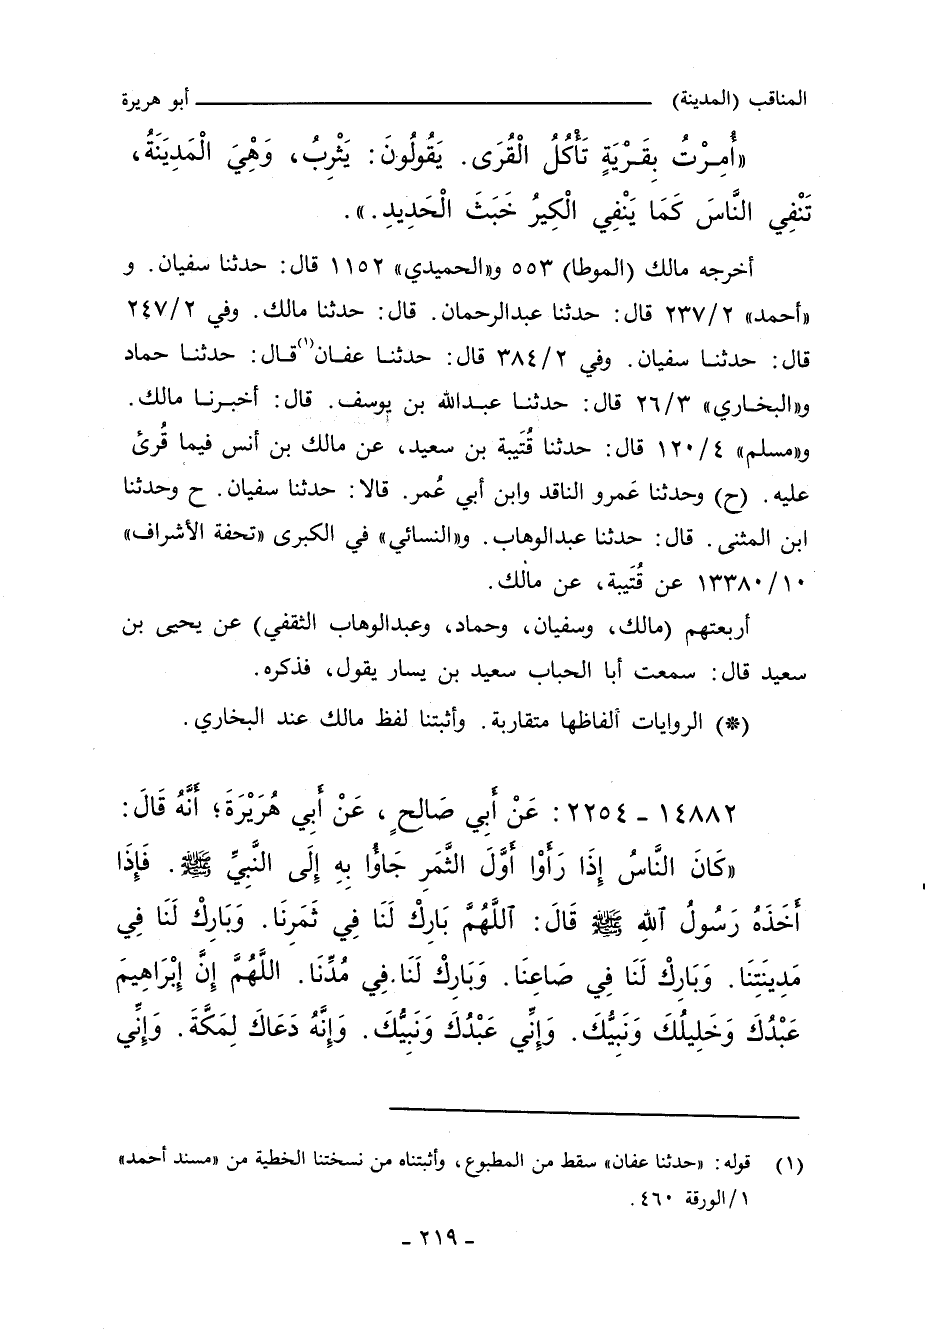 المناقب (المدينة) ــــــــــ أبو هريرة
«أُمِرْتُ بِقَرْيَةٍ تَأْكُلُ الْقُرَى. يَقُولُونَ: يَثْرِبُ، وَهْيَ الْمَدِينَةُ،
تَنْفِي النَّاسَ كَمَا يَنْفِي الْكِيرُ خَبَثَ الْحَدِيدِ.».
أخرجه مالك (الموطا) ٥٥٣ و«الحميدي» ١١٥٢ قال: حدثنا سفيان. و
«أحمد» ٢٣٧/٢ قال: حدثنا عبدالرحمان. قال: حدثنا مالك. وفي ٢٤٧/٢
قال: حدثنا سفيان. وفي ٣٨٤/٢ قال: حدثنا عفان(١) قال: حدثنا حماد
و«البخاري» ٢٦/٣ قال: حدثنا عبدالله بن يوسف. قال: أخبرنا مالك.
و«مسلم» ١٢٠/٤ قال: حدثنا قُتَيبة بن سعيد، عن مالك بن أنس فيما قُرئ
عليه. (ح) وحدثنا عَمرو الناقد وابن أبي عُمر. قالا: حدثنا سفيان. ح وحدثنا
ابن المثنى. قال: حدثنا عبدالوهاب. و«النسائي» في الكبرى «تحفة الأشراف»
١٣٣٨٠/١٠ عن قُتَيبة، عن مالك.
أربعتهم (مالك، وسفيان، وحماد، وعبدالوهاب الثقفي) عن يحيى بن
سعيد قال: سمعت أبا الحباب سعيد بن يسار يقول، فذكره.
(*) الروايات ألفاظها متقاربة. وأثبتنا لفظ مالك عند البخاري.
١٤٨٨٢ - ٢٢٥٤: عَنْ أَبِي صَالِحٍ، عَنْ أَبِي هُرَيْرَةَ؛ أَنَّهُ قَالَ:
«كَانَ النَّاسُ إِذَا رَأَوْا أَوَّلَ الثَّمَرِ جَاؤُا بِهِ إِلَى النَّبِيِّ ﷺ. فَإِذَا
أَخَذَهُ رَسُولُ ٱللهِ ﷺ قَالَ: ٱللَّهُمَّ بَارِكْ لَنَا فِي ثَمَرِنَا. وَبَارِكْ لَنَا فِي
مَدِينَتِنَا. وَبَارِكْ لَنَا فِي صَاعِنَا. وَبَارِكْ لَنَا فِي مُدِّنَا. اللَّهُمَّ إِنَّ إِبْرَاهِيمَ
عَبْدُكَ وَخَلِيلُكَ وَنَبِيُّكَ. وَإِنِّي عَبْدُكَ وَنَبِيُّكَ. وَإِنَّهُ دَعَاكَ لِمَكَّةَ. وَإِنِّي
(١) قوله: «حدثنا عفان» سقط من المطبوع، وأثبتناه من نسختنا الخطية من «مسند أحمد»
١/الورقة ٤٦٠.
- ٢١٩ -